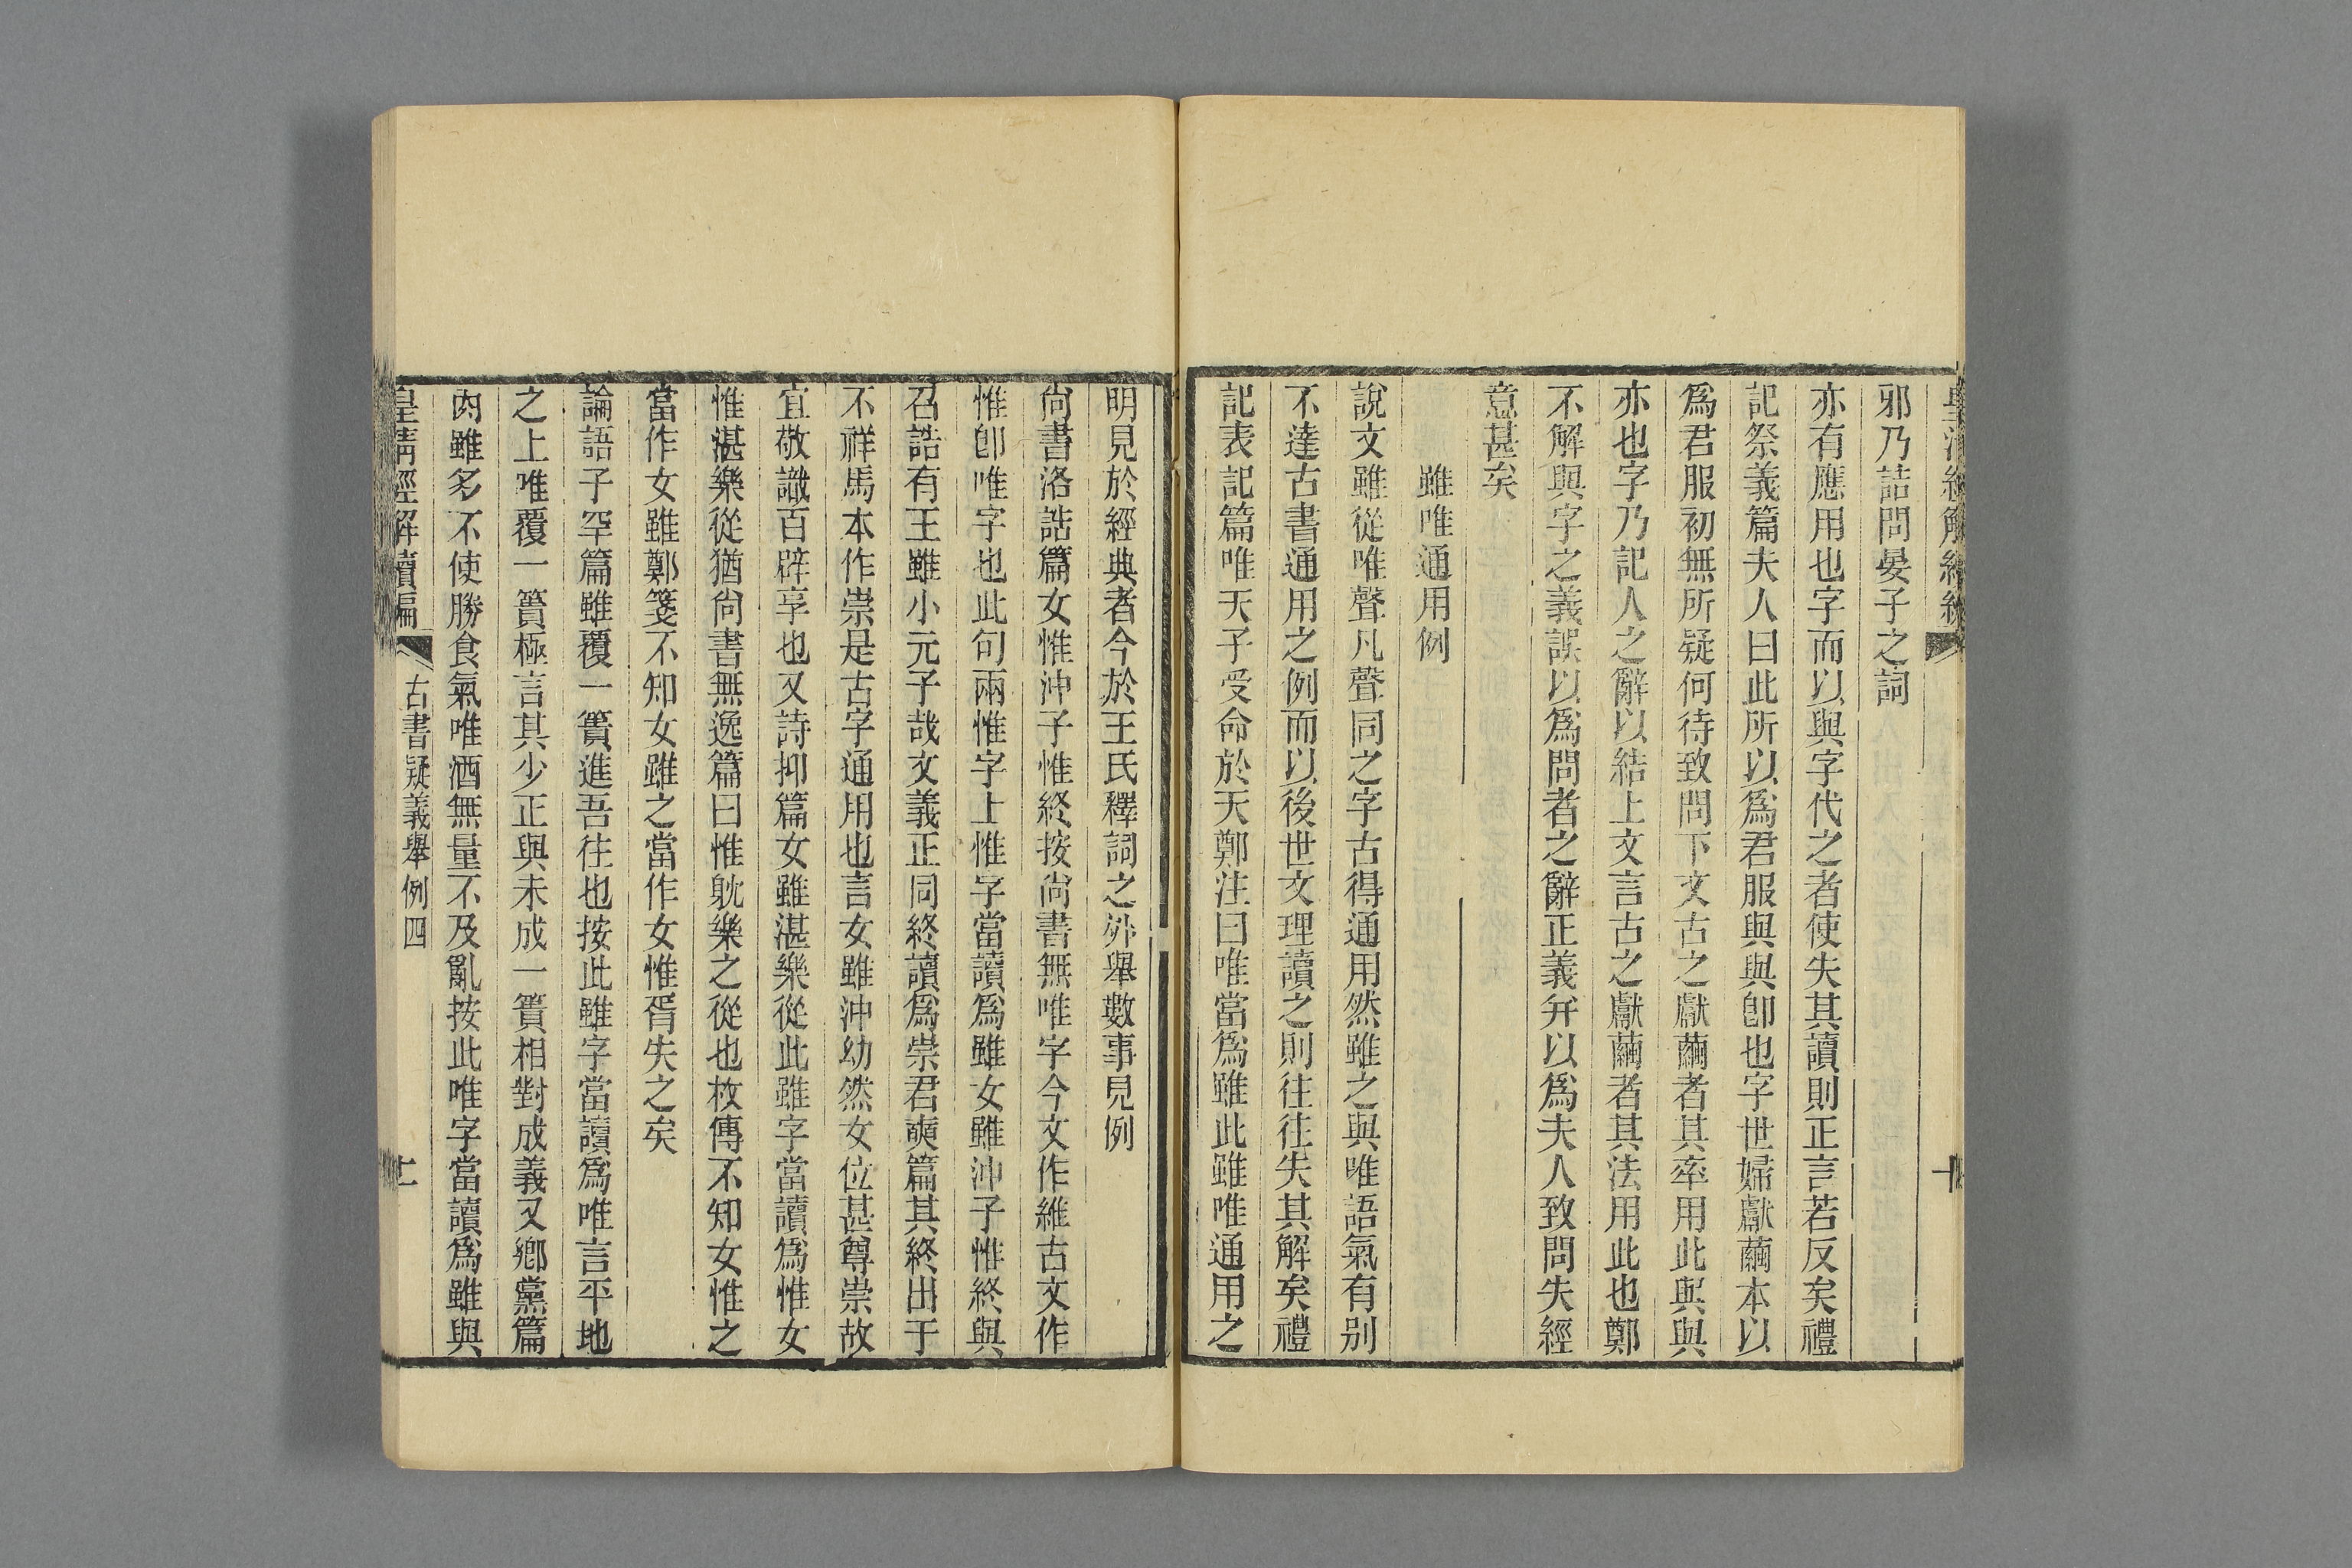 邪乃詰問晏子之詞
亦有應用也字而以與字代之者使失其讀則正言若反矣禮
記祭義篇夫人曰此所以爲君服與與卽也字世婦獻繭本以
爲君服初無所疑何待致問下文古之獻繭者其率用此與與
亦也字乃記人之辭以結上文言古之獻繭者其法用此也鄭
不解與字之義誤以爲問者之辭正義幷以爲夫人致問失經
意甚矣
雖唯通用例
說文雖從唯聲凡聲同之字古得通用然雖之與唯語氣有別
不達古書通用之例而以後世文理讀之則往往失其解矣禮
記表記篇唯天子受命於天鄭注曰唯當爲雖此雖唯通用之
明見於經典者今於王氏釋詞之外舉數事見例
尙書洛誥篇女惟沖子惟終按尙書無唯字今文作維古文作
惟卽唯字也此句兩惟字上惟字當讀爲雖女雖沖子惟終與
召誥有王雖小元子哉文義正同終讀爲崇君奭篇其終出于
不祥馬本作崇是古字通用也言女雖沖幼然女位甚尊崇故
宜敬識百辟享也又詩抑篇女雖湛樂從此雖字當讀爲惟女
惟湛樂從猶尙書無逸篇曰惟耽樂之從也枚傳不知女惟之
當作女雖鄭箋不知女雖之當作女惟胥失之矣
論語子罕篇雖覆一簣進吾往也按此雖字當讀爲唯言平地
之上唯覆一簣極言其少正與未成一簣相對成義又鄕黨篇
肉雖多不使勝食氣唯酒無量不及亂按此唯字當讀爲雖與
皇淸經解續編
古書疑義舉例四